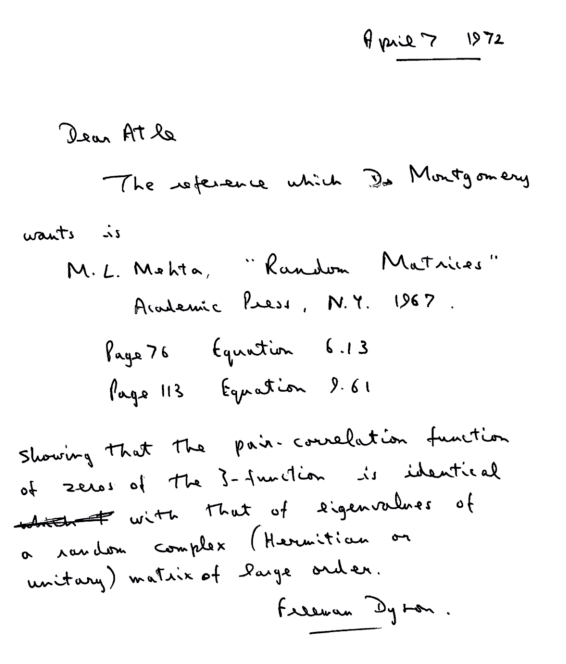 April 7 1972
Dear Atle
The reference which Dr Montgomery
wants is
M. L. Mehta, "Random Matrices"
Academic Press, N.Y. 1967.
Page 76 Equation 6.13
Page 113 Equation 9.61
Showing that the pair-correlation function
of zeros of the ζ-function is identical
with that of eigenvalues of
a random complex (Hermitian or
unitary) matrix of large order.
Freeman Dyson.